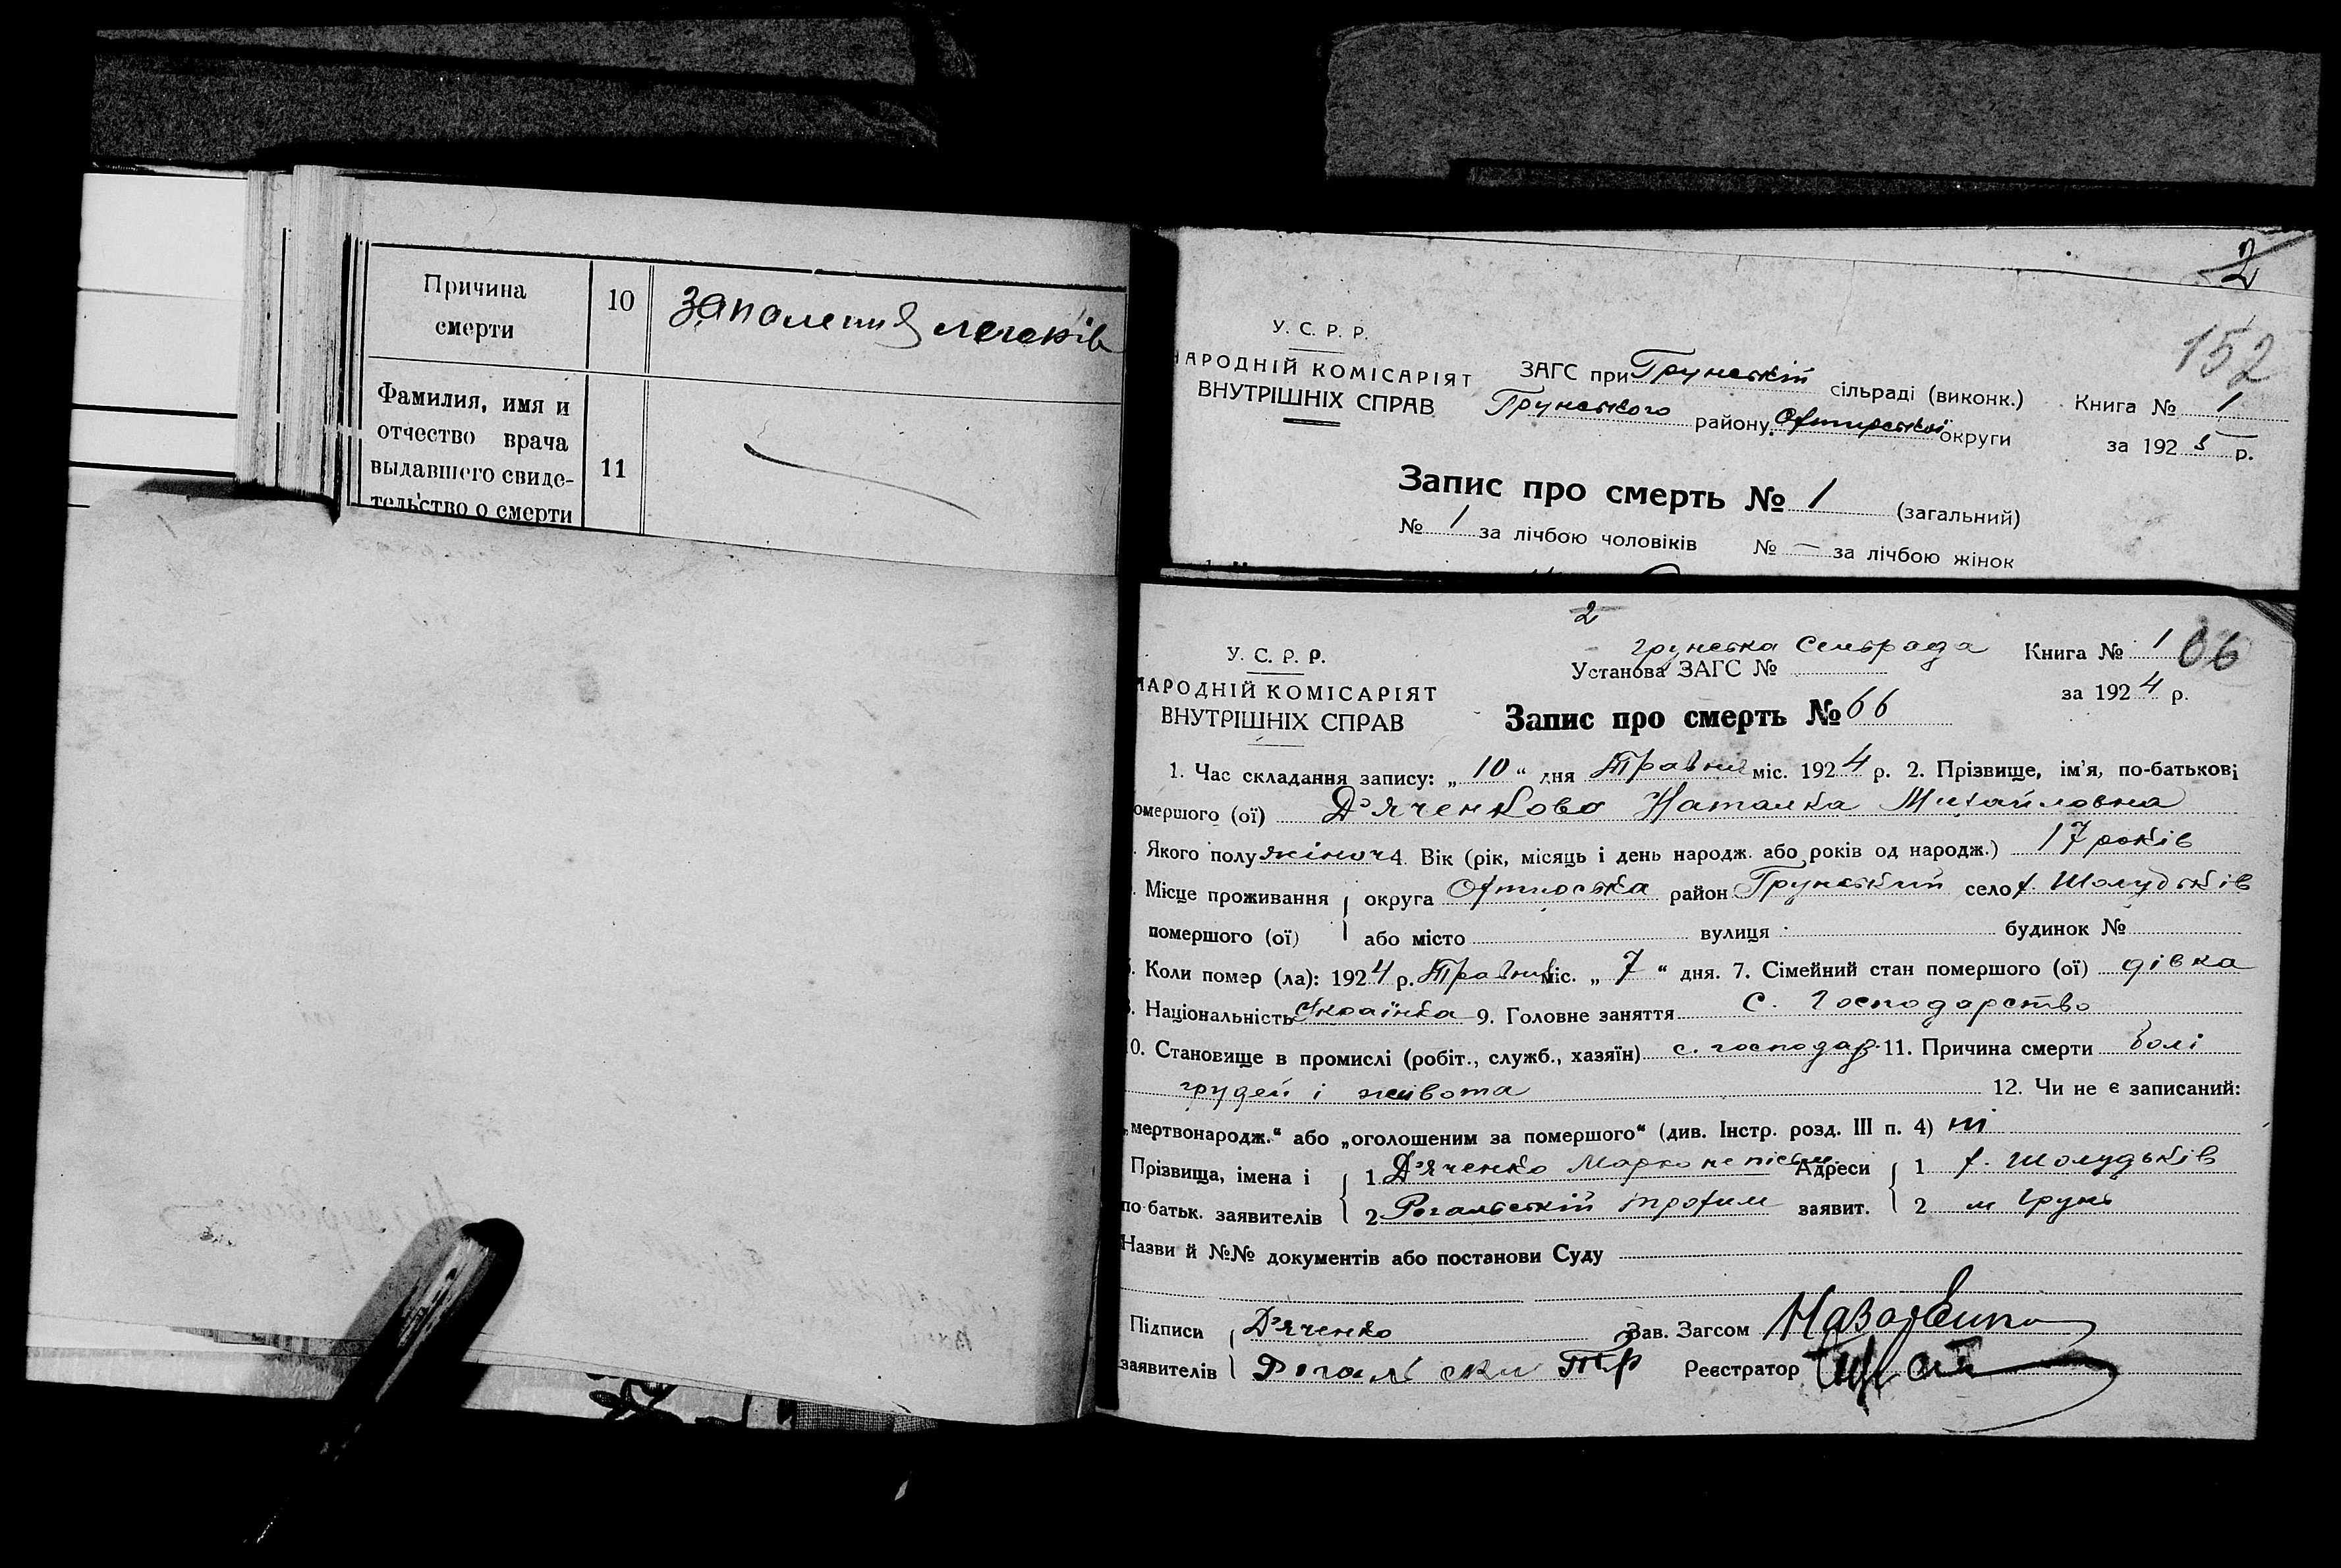 Причина
смерти
10
запаления легенів
Фамилия, имя и
отчество врача
выдавшего свиде-
тельство о смерти
11
2
152
У. С. Р. Р.
НАРОДНІЙ КОМІСАРІЯТ
ВНУТРІШНІХ СПРАВ
ЗАГС при Грунській сільраді (виконк.)
Грунського району Охтирської округи
Книга № 1
за 1925 р.
Запис про смерть № 1 (загальний)
№ 1 за лічбою чоловіків № — за лічбою жінок
2
У. С. Р. Р.
НАРОДНІЙ КОМІСАРІЯТ
ВНУТРІШНІХ СПРАВ
Грунська Сельрада
Установа ЗАГС №
Книга № 1
66
за 1924 р.
Запис про смерть № 66
1. Час складання запису: „10“ дня Травня міс. 1924 р. 2. Прізвище, ім’я, по-батькові
омершого (ої) Д'яченкова Наталка Михайловна
. Якого полу жіноч 4. Вік (рік, місяць і день народж. або років од народж.) 17 років
. Місце проживання округа Охтирська район Грунський село х. Шолудьків
помершого (ої) або місто вулиця будинок №
. Коли помер (ла): 1924 р. Травня міс. „7“ дня. 7. Сімейний стан помершого (ої) дівка
. Національність Українка 9. Головне заняття С. Господарство
0. Становище в промислі (робіт., служб., хазяїн) с. господар. 11. Причина смерти болі
грудей і живота 12. Чи не є записаний:
„мертвонародж.“ або „оголошеним за помершого“ (див. Інстр. розд. III п. 4) ні
Прізвища, імена і 1 Д'яченко Марко не письм. Адреси 1 х. Шолудьків
по-батьк. заявителів 2 Рогальский Трохим заявит. 2 м Грунь
Назви й №№ документів або постанови Суду
Підписи Д'яченко Зав. Загсом
заявителів Рогальски Тр Реєстратор